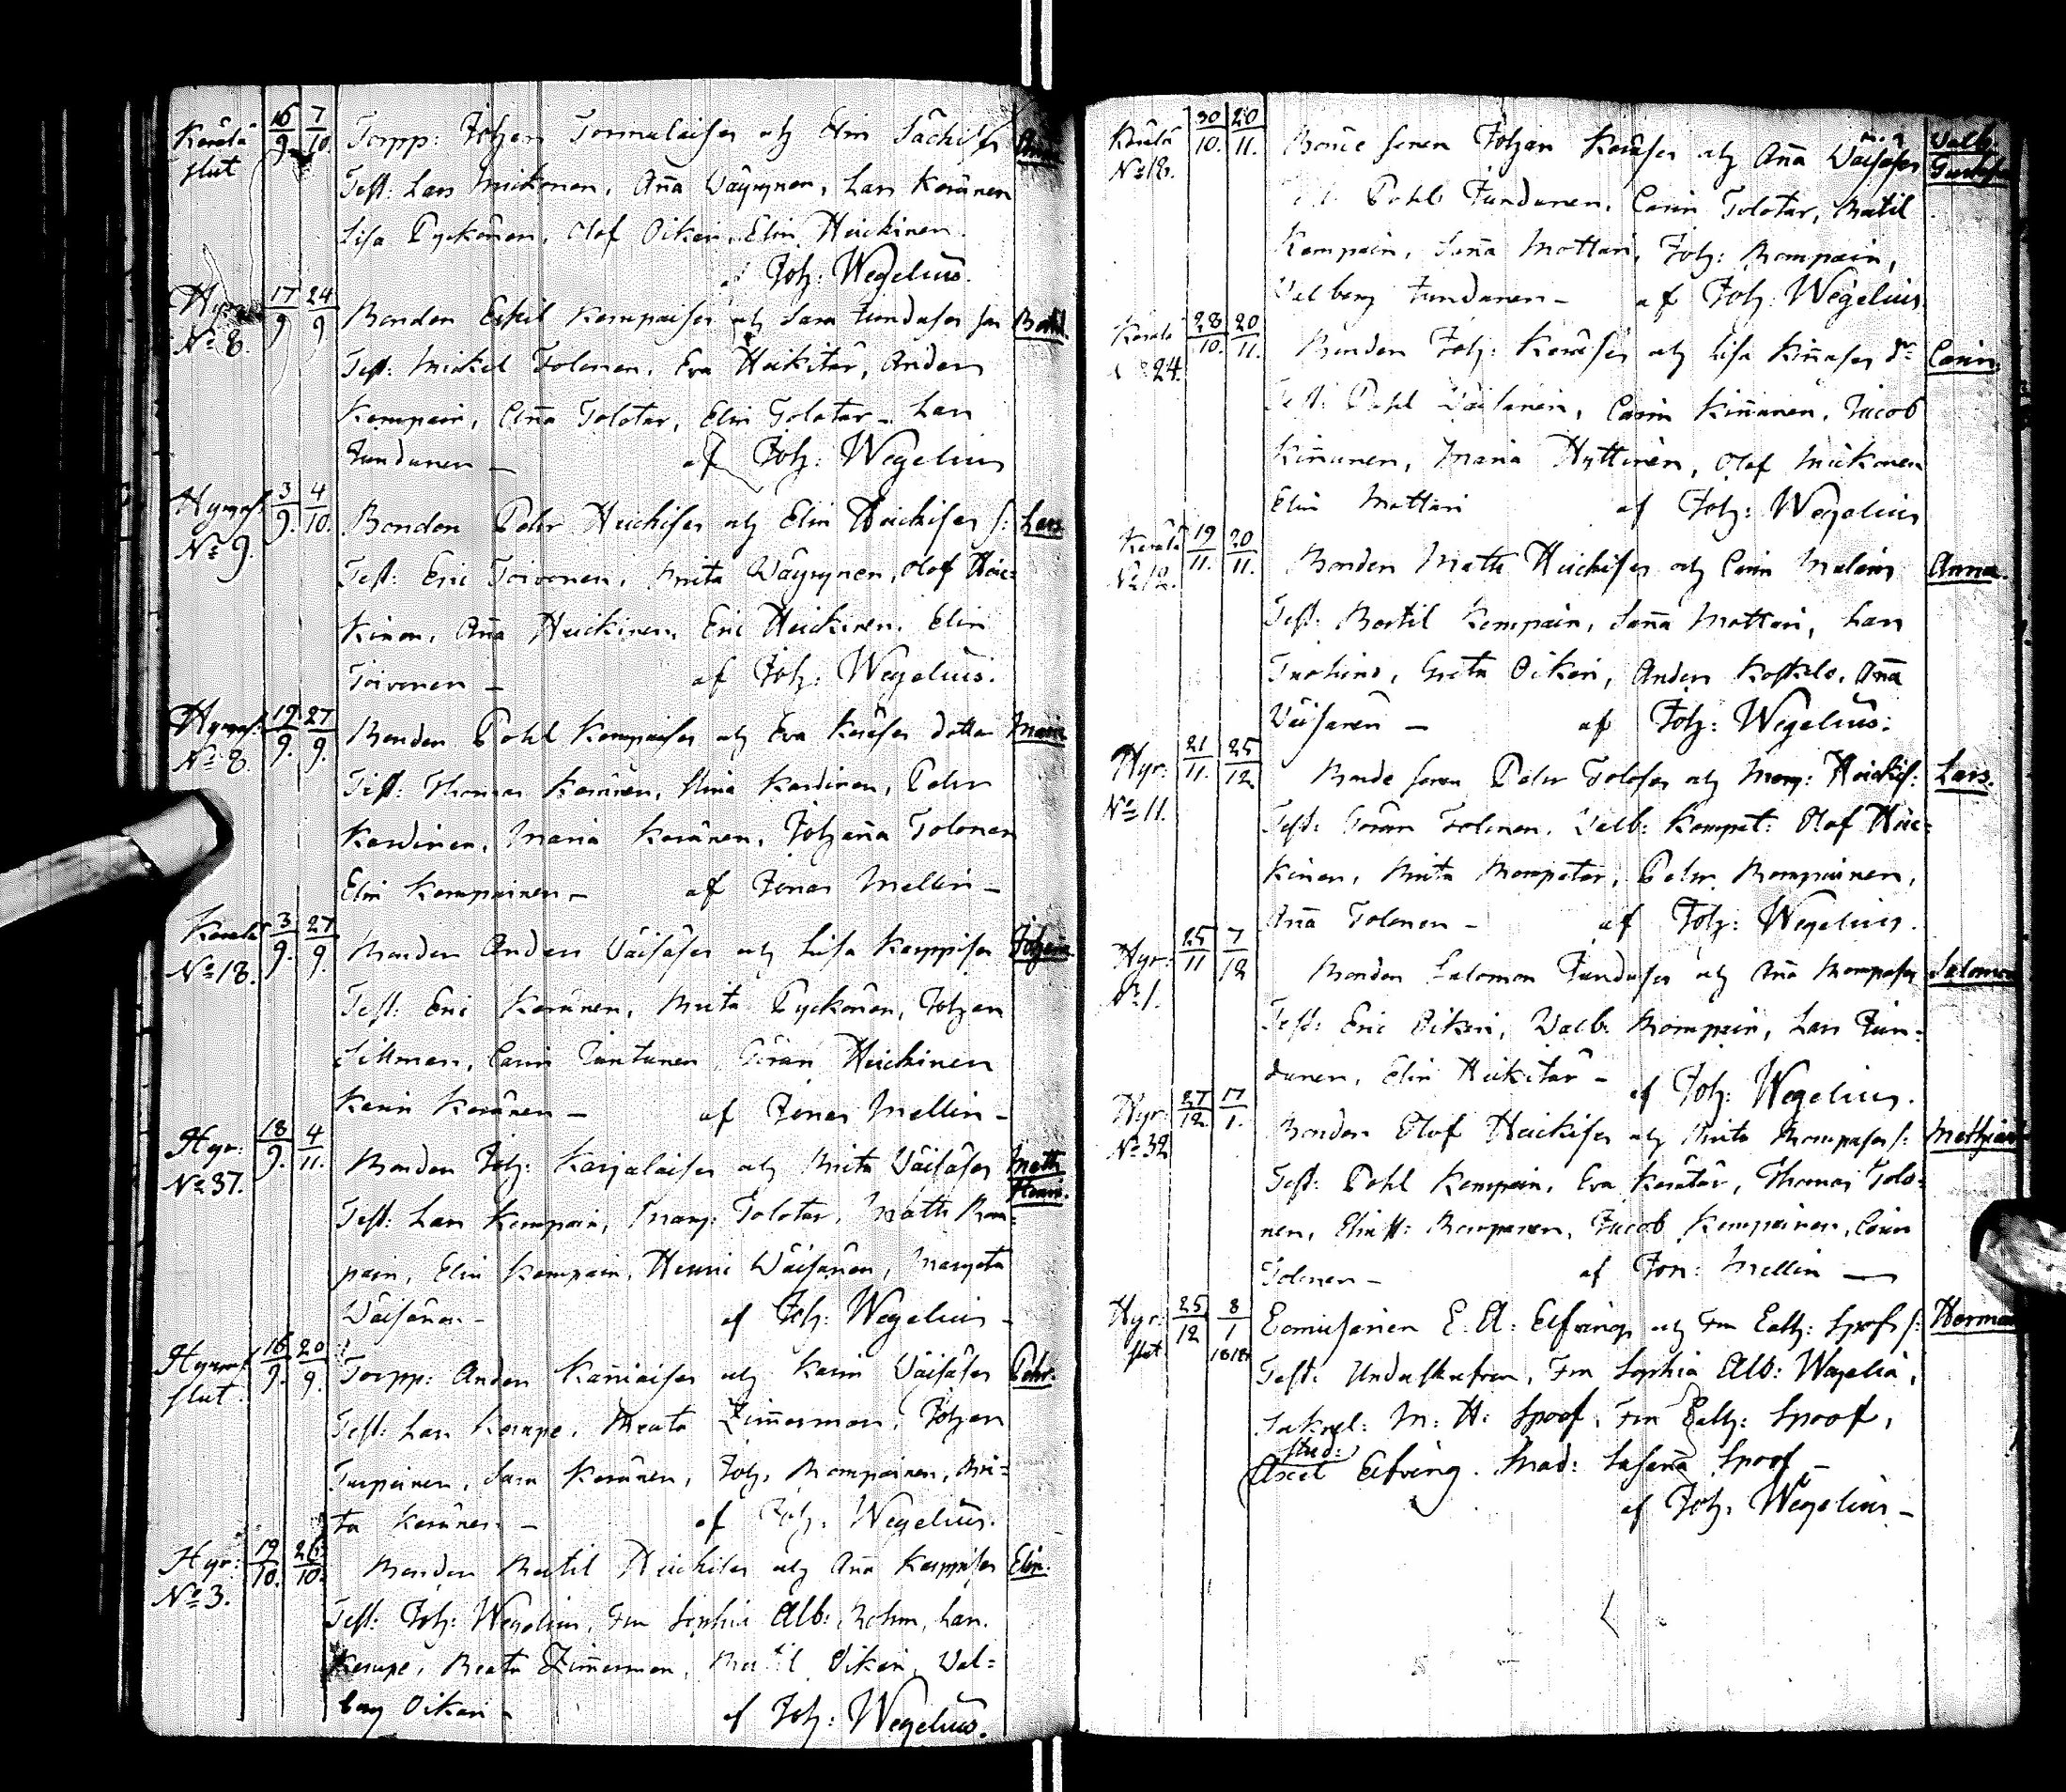 Kerälä 16/9 7/10. Torpp: Johan Tormulaisen och Elin
slut Test: Lars Mickonen, Anna Väyrynen, Lars Keränen
Lisa Pyckönen, Olof Oikari, Elin Heickinen
af Joh: Wegelius.
17/9 24/9 Bonden Eskil Kempaisen och Sara Tundusen son Bertil.
No 8. Test: Mickel Tolonen, Eva Heikitär, Anders
Kempain, Anna Tolotar, Elin Tolotar – Lars
Tundunen – af Joh: Wegelius
Hyryns: 3/9. 4/10. Bonden Pehr Heickisen och Elin Heickisen s: Lars
No 9. Test: Eric Toivonen, Brita Wäyrynen, Olof Heic=
kinen, Anna Heickinen, Eric Heickinen, Elin
Toivonen – af Joh: Wegelius.
Hyryns: 19/9. 27/9. Bonden Pohl Kempaisen och Eva Keräsen dotter Maria
No 8. Test: Thomas Keränen, Stina Kardinen, Pehr
Kardinen, Maria Keränen, Johanna Tolonen
Elin Kempainen – af Jonas Mellin –
Kerälä 3/9. 27/9. Bonden Anders Väisäsen och Lisa Karppisen Johan
No 18. Test: Eric Keränen, Brita Pyckönen, Johan
Sillman, Carin Tuntunen, Göran Heickinen
Karin Keränen – af Jonas Mellin –
Hyr: 18/9. 4/11. Bonden Joh: Karjalaisen och Brita Väisäsen Matts
No 37. Henric.
Test: Lars Kempain, Marg: Tolotar, Matts Rom=
pain, Elin Kempain, Henric Wäisänen, Margeta
Wäisänen – af Joh: Wegelius –
Hyryns: 16/9. 20/9. Torpp: Anders Kaniaisen och Karin Väisäsen Pehr.
slut. Test: Lars Kempe, Beata Zimmerman, Johan
Turpeinen, Sara Keränen, Joh. Rompainen, Bri=
ta Keränen – af Joh: Wegelius.
Hyr: 19/10. 26/10. Bonden Bertil Heickisen och Anna Karppisen Elin.
No 3. Test: Joh: Wegelius, Fru Sophia Alb: Rohm, Lars
Kempe, Beata Zimmerman, Bertil Oikari, Wal=
borg Oikari – af Joh: Wegelius.
Kerälä 30/10. 20/11. Bonde sonen Johan Keräsen och Anna Väisäsen Walb.
No 18. Gustava
Pohl Tundunen, Carin Tolotar, Bertil
Kempain, Sanna Mattari, Joh: Rompain,
Valborg Tundunen – af Joh: Wegelius
Kerälä 28/10. 20/11. Bonden Joh: Keräsen och Lisa Kinnusen dr Carin.
24. Test: Pohl Väisänen, Carin Kinnunen, Jacob
Kinnunen, Maria Hyttinen, Olof Mickonen
Elin Mattari af Joh: Wegelius
Kerälä 19/11. 20/11. Bonden Matts Heickisen och Carin Anna.
No 12. Test: Bertil Kempain, Sanna Mattari, Lars
Greta Oikari, Anders Koskelo, Anna
Väisänen – af Joh: Wegelius:
Hyr: 21/11. 25/12 Bonde sonen Pehr Tolosen och Marg: Heickis: Lars.
No 11. Test: Göran Tolonen, Valb: Kempat: Olof Heic=
kinen, Brita Rompatar, Pehr Rompainen,
Anna Tolonen – af Joh: Wegelius.
Hyr: 25/11 7/12 Bonden Salomon Tundusen och Anna Rompasen Salomon
No 1. Test: Eric Oikari, Walb: Rompain, Lars Tun=
dunen, Elin Heikitär – af Joh: Wegelius.
Hyr: 27/12. 17/1. Bonden Olof Heickisen och Brita Rompasen s: Mathias
No 32 Test: Pohl Kempain, Eva Kerätär, Thomas Tolo=
nen, Jacob Kempainen, Carin
Tolonen – af Jon: Mellin –
Hyr: 25/12 8/1 1818. Comissarien E: A: Elfving och Fru Cath: Spoof s: Herman
slut Test: Fru Sophia Alb: Wegelia,
M: H: Spoof, Fru Cath: Spoof,
Stud:
Axel Elfving. Mad: Susanna Spoof –
af Joh: Wegelius –